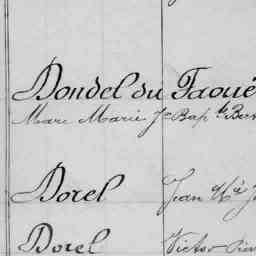 Dondel du Faoué
Marc Marie Jn Bapte
Dorel Jean Mie
Dorel Victor